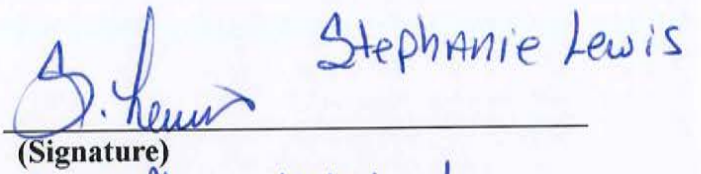 Stephanie Lewis
S. Lewis
(Signature)